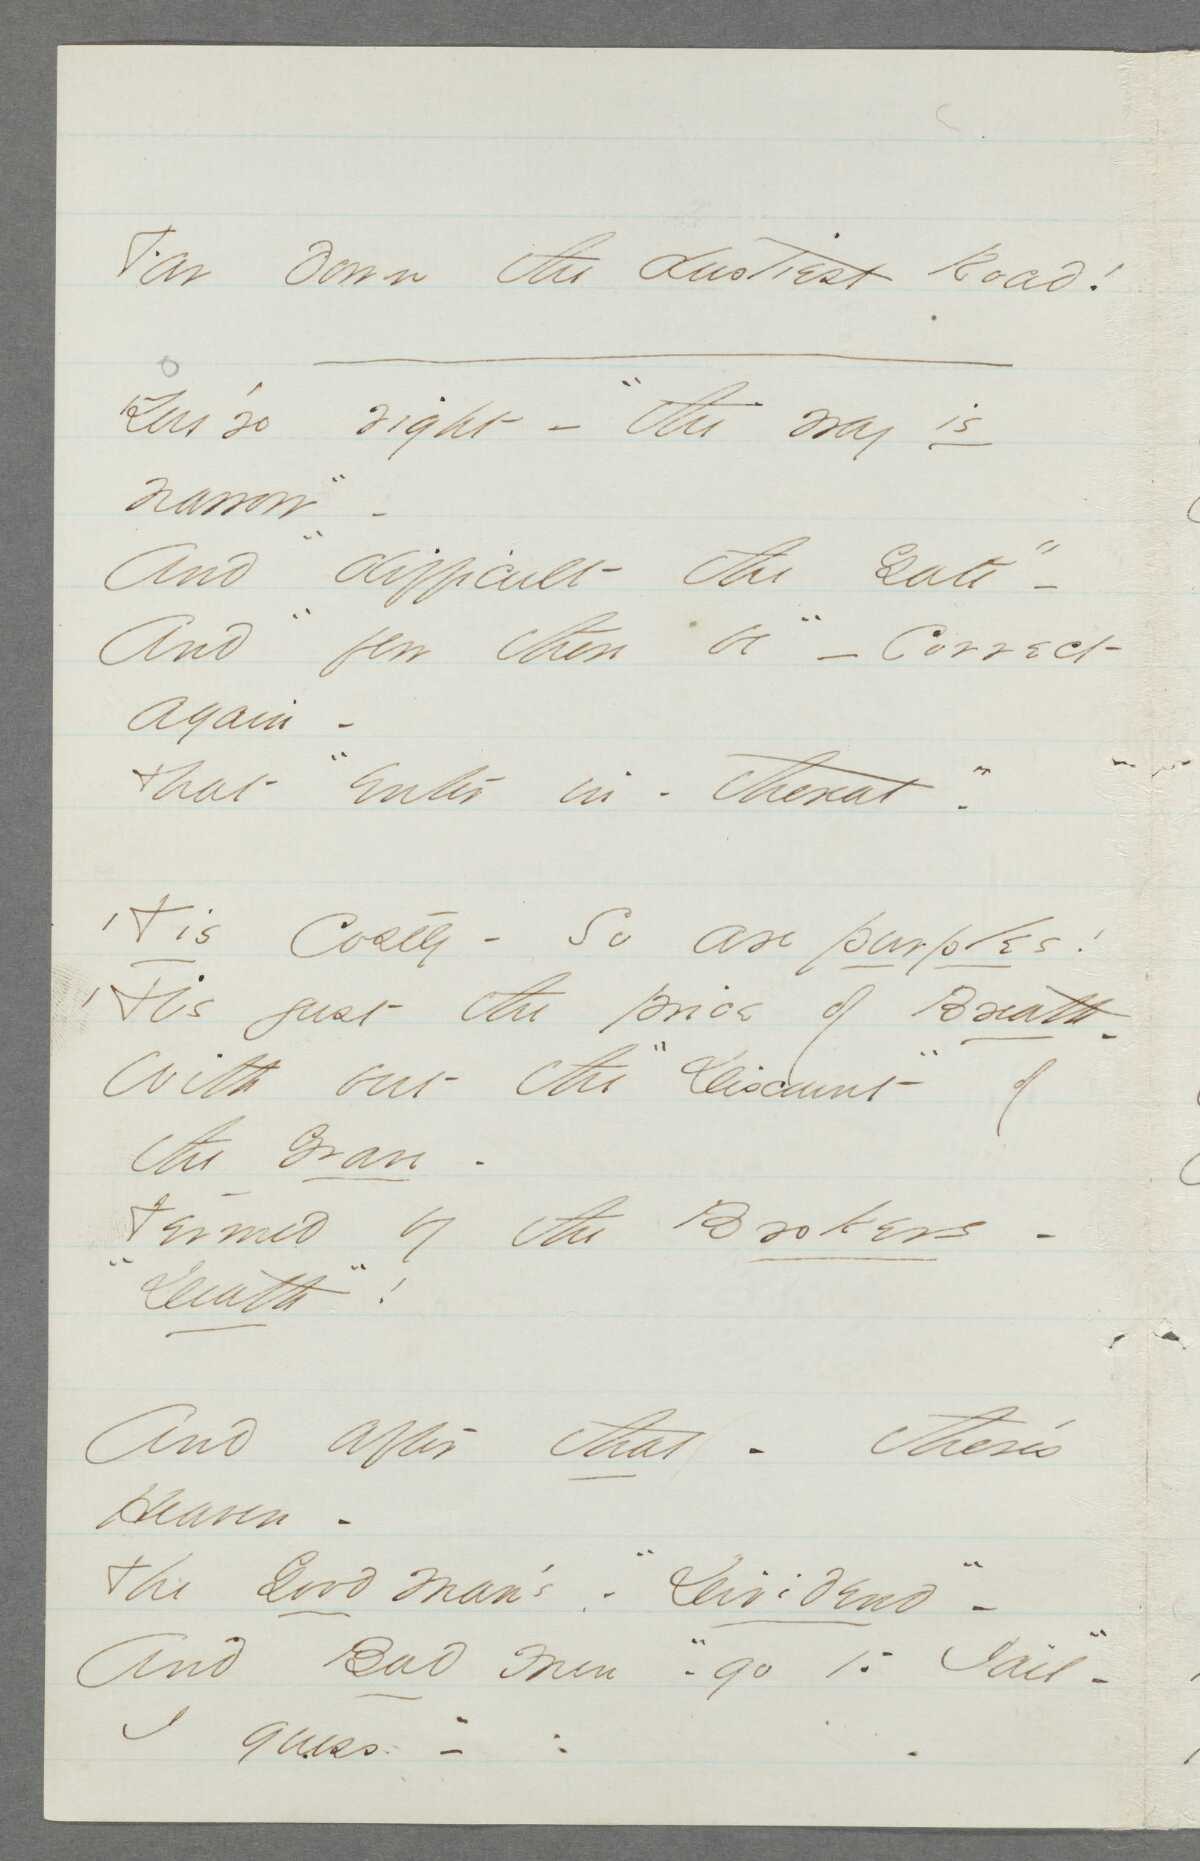 Far down the dustiest Road!
You're right - "the way is
narrow" -
And "difficult the Gate" -
And "few there be" - Correct
again -
That "enter in - thereat" -
'Tis Costly - So are purples!
'Tis just the price of Breath -
With but the "Discount" of
the Grave -
Termed by the Brokers -
"Death"!
And after that - there's
Heaven -
The Good man's - "Dividend" -
And Bad men - "go to Jail" -
I guess -